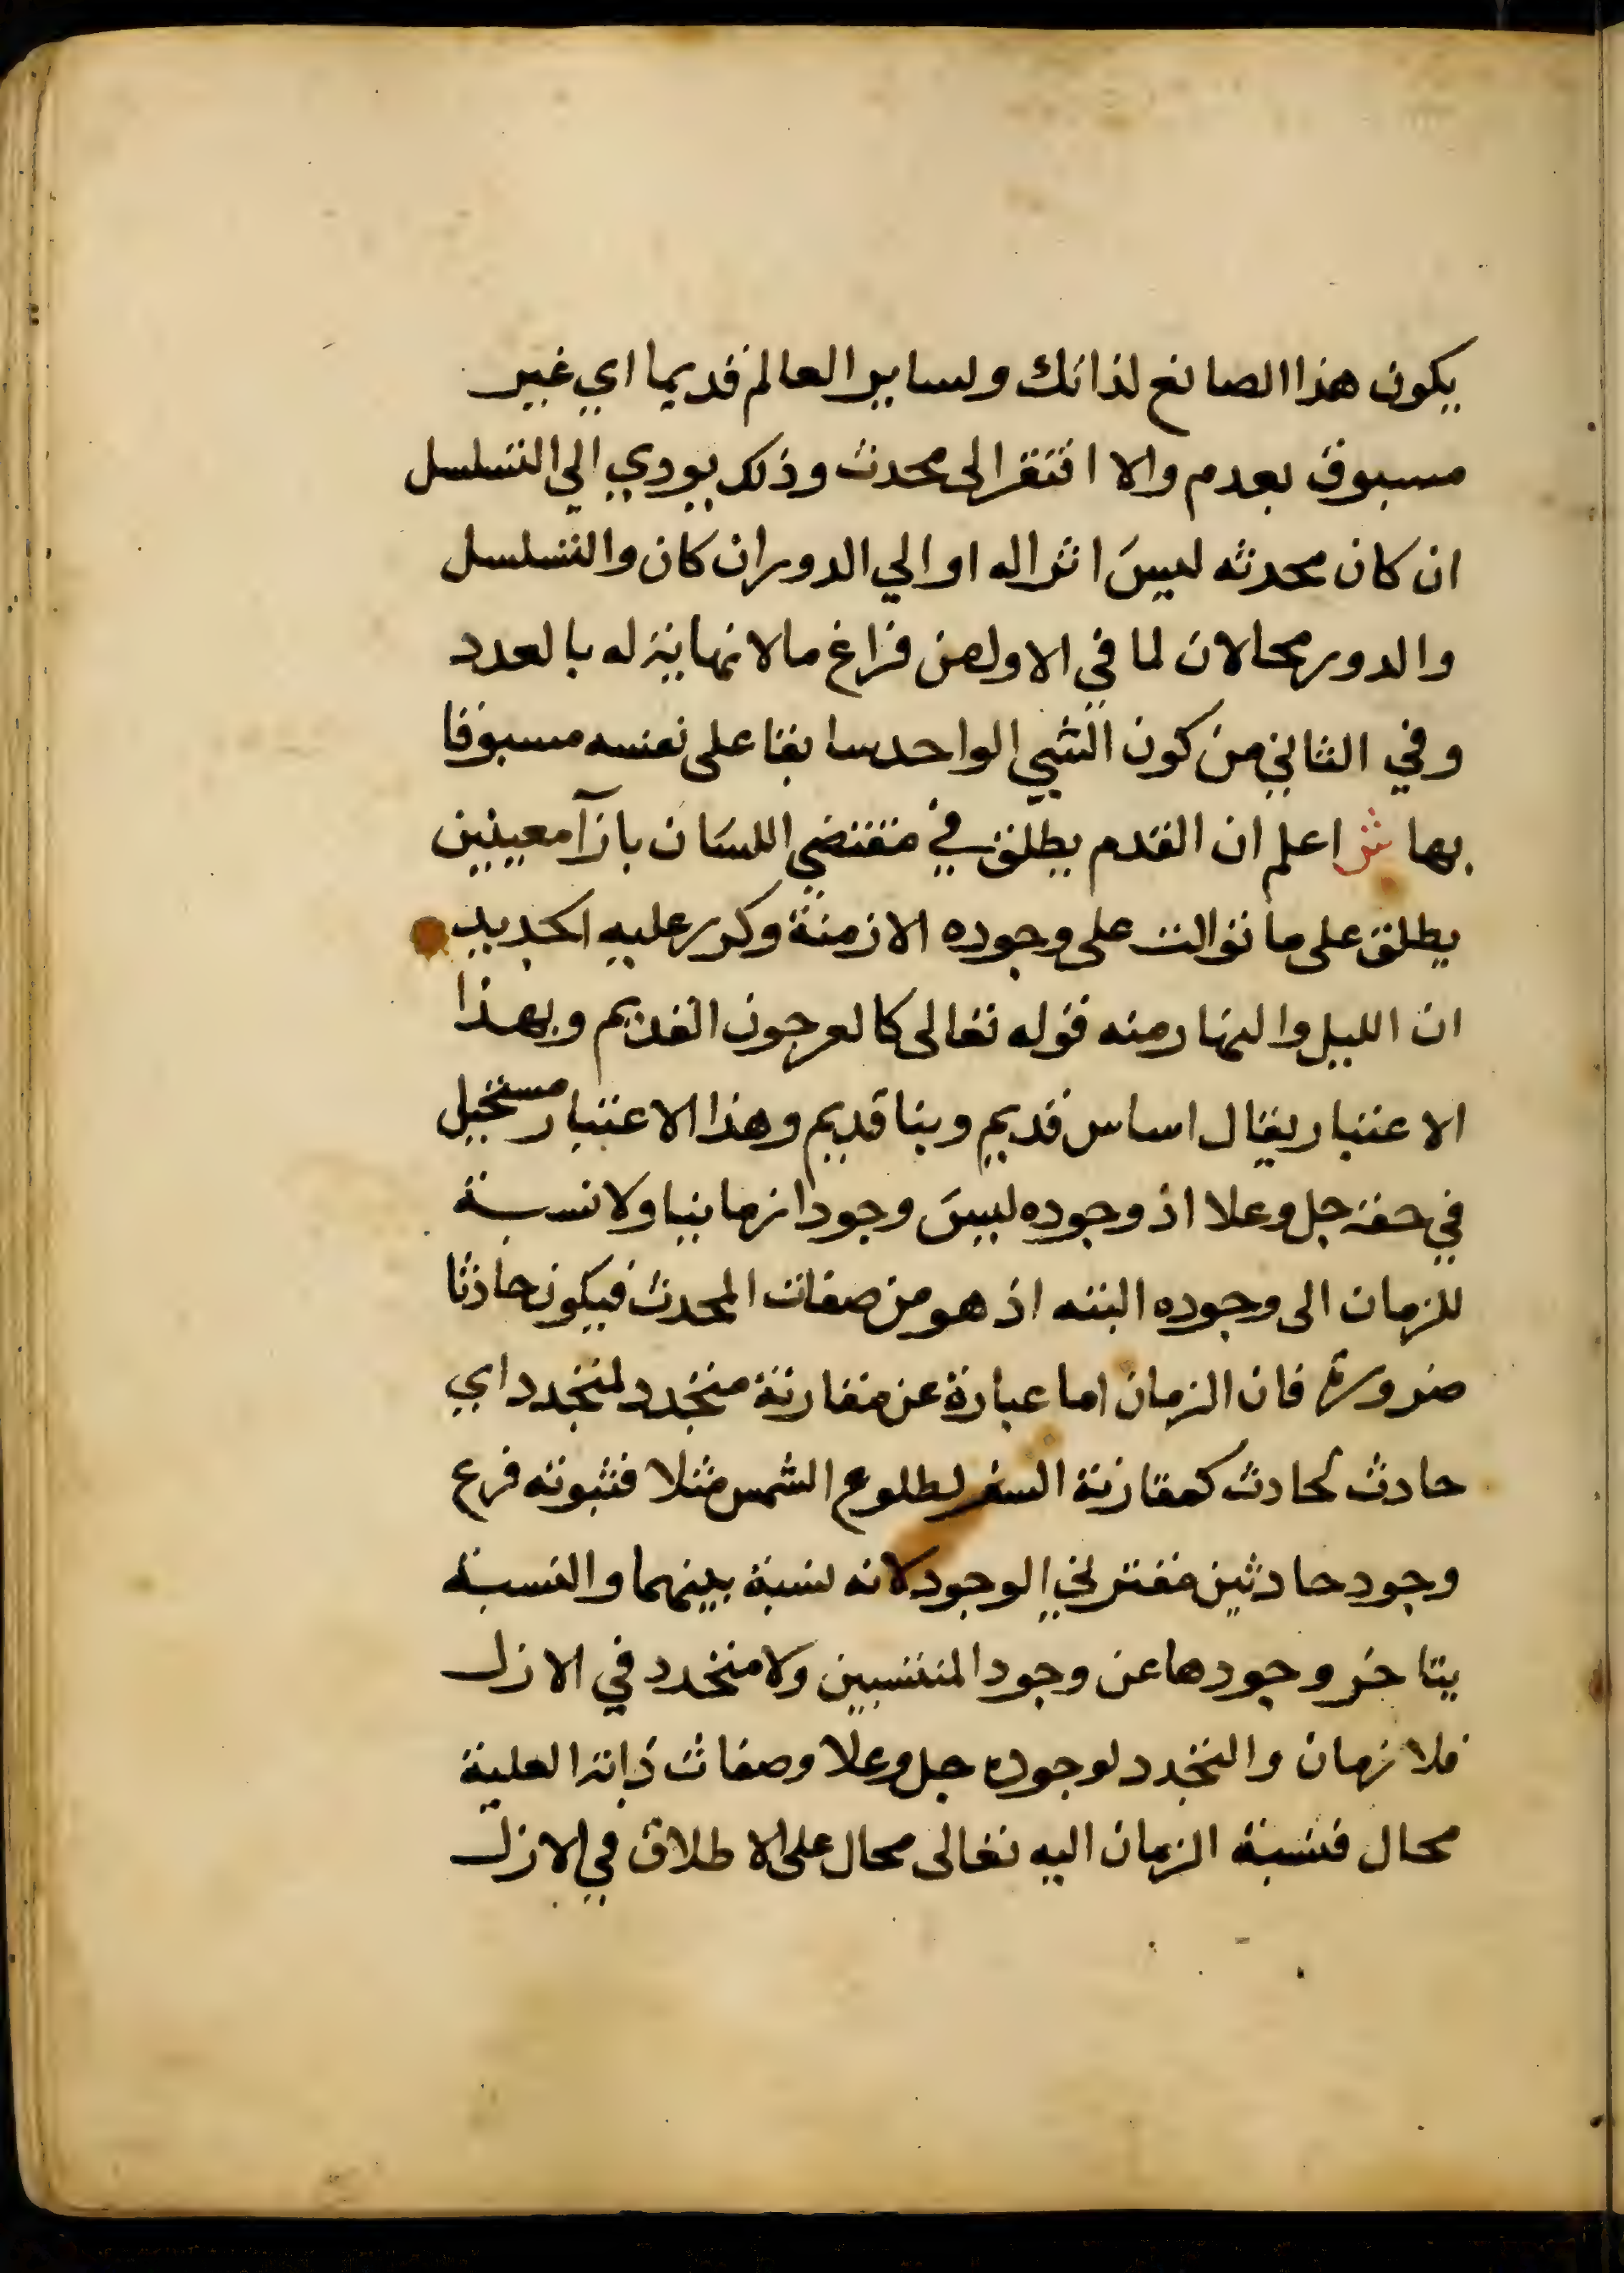 يكون هذا الصانع لذاتك ولساير العالم قديما اي غير
مسبوق بعدم والا افتقر الى محدث وذلك يودي الي التسلسل
ان كان محدثه ليس اثرا له او الي الدور ان كان والتسلسل
والدور محالان لما في الاول من فراغ ما لا نهاية له بالعدد
وفي الثاني من كون الشي الواحد سابقا على نفسه مسبوقا
بها ش اعلم ان القدم يطلق في مقتضي اللسان بازآ معينين
يطلق على ما توالت على وجوده الازمنة وكرر عليه الجديد
ان الليل والنهار منه قوله تعالى كالعرجون القديم وبهذا
الاعتبار يقال اساس قديم وبنا قديم وهذا الاعتبار مستحيل
في حقه جل وعلا اذ وجوده ليس وجودا زمانيا ولا نسبة
للزمان الى وجوده البته اذ هو من صفات المحدث فيكون حادثا
ضرورة فان الزمان اما عبارة عن مقارنة متجدد لمتجدد اي
حادث لحادث كمقارنة السفر لطلوع الشمس مثلا فثبوته فرع
وجود حادثين مقترني الوجود لانه نسبة بينهما والنسبة
يتاخر وجودها عن وجود المنتسبين ولا متجدد في الازل
فلا زمان والتجدد لوجوده جل وعلا وصفات ذاته العلية
محال فنسبة الزمان اليه تعالى محال على الاطلاق في الازل